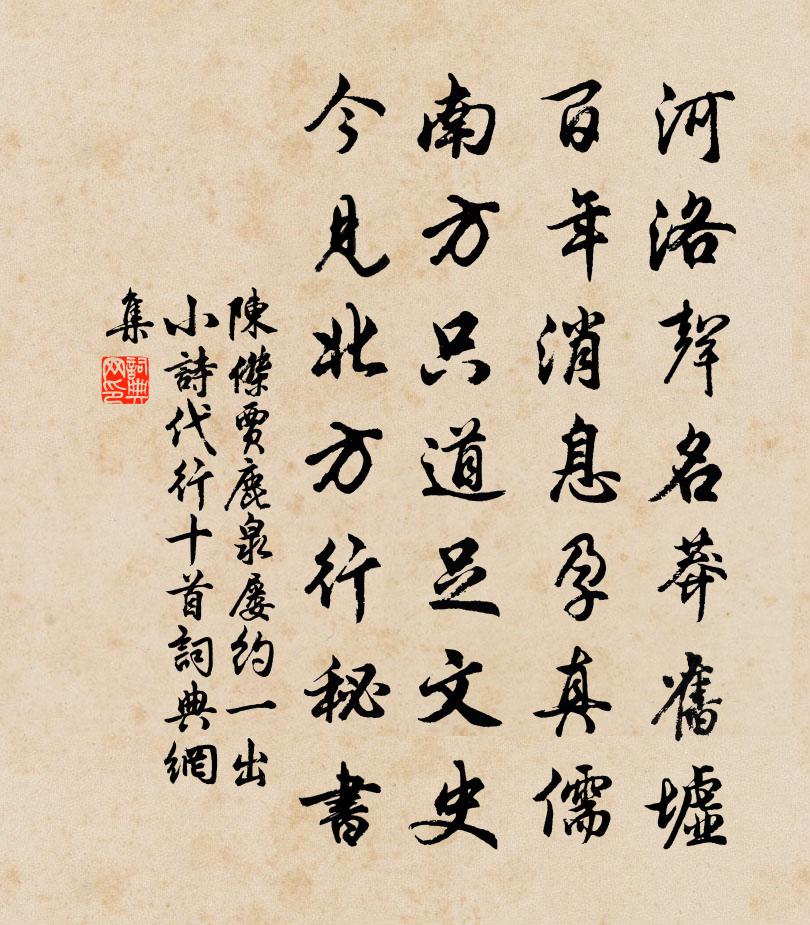 河洛聲名莽舊墟
百年消息孕真儒
南方只道足文史
今見北方行秘書
陳傑賈鹿泉屢約一出
小詩代行十首詞典網
集
詞典
网印